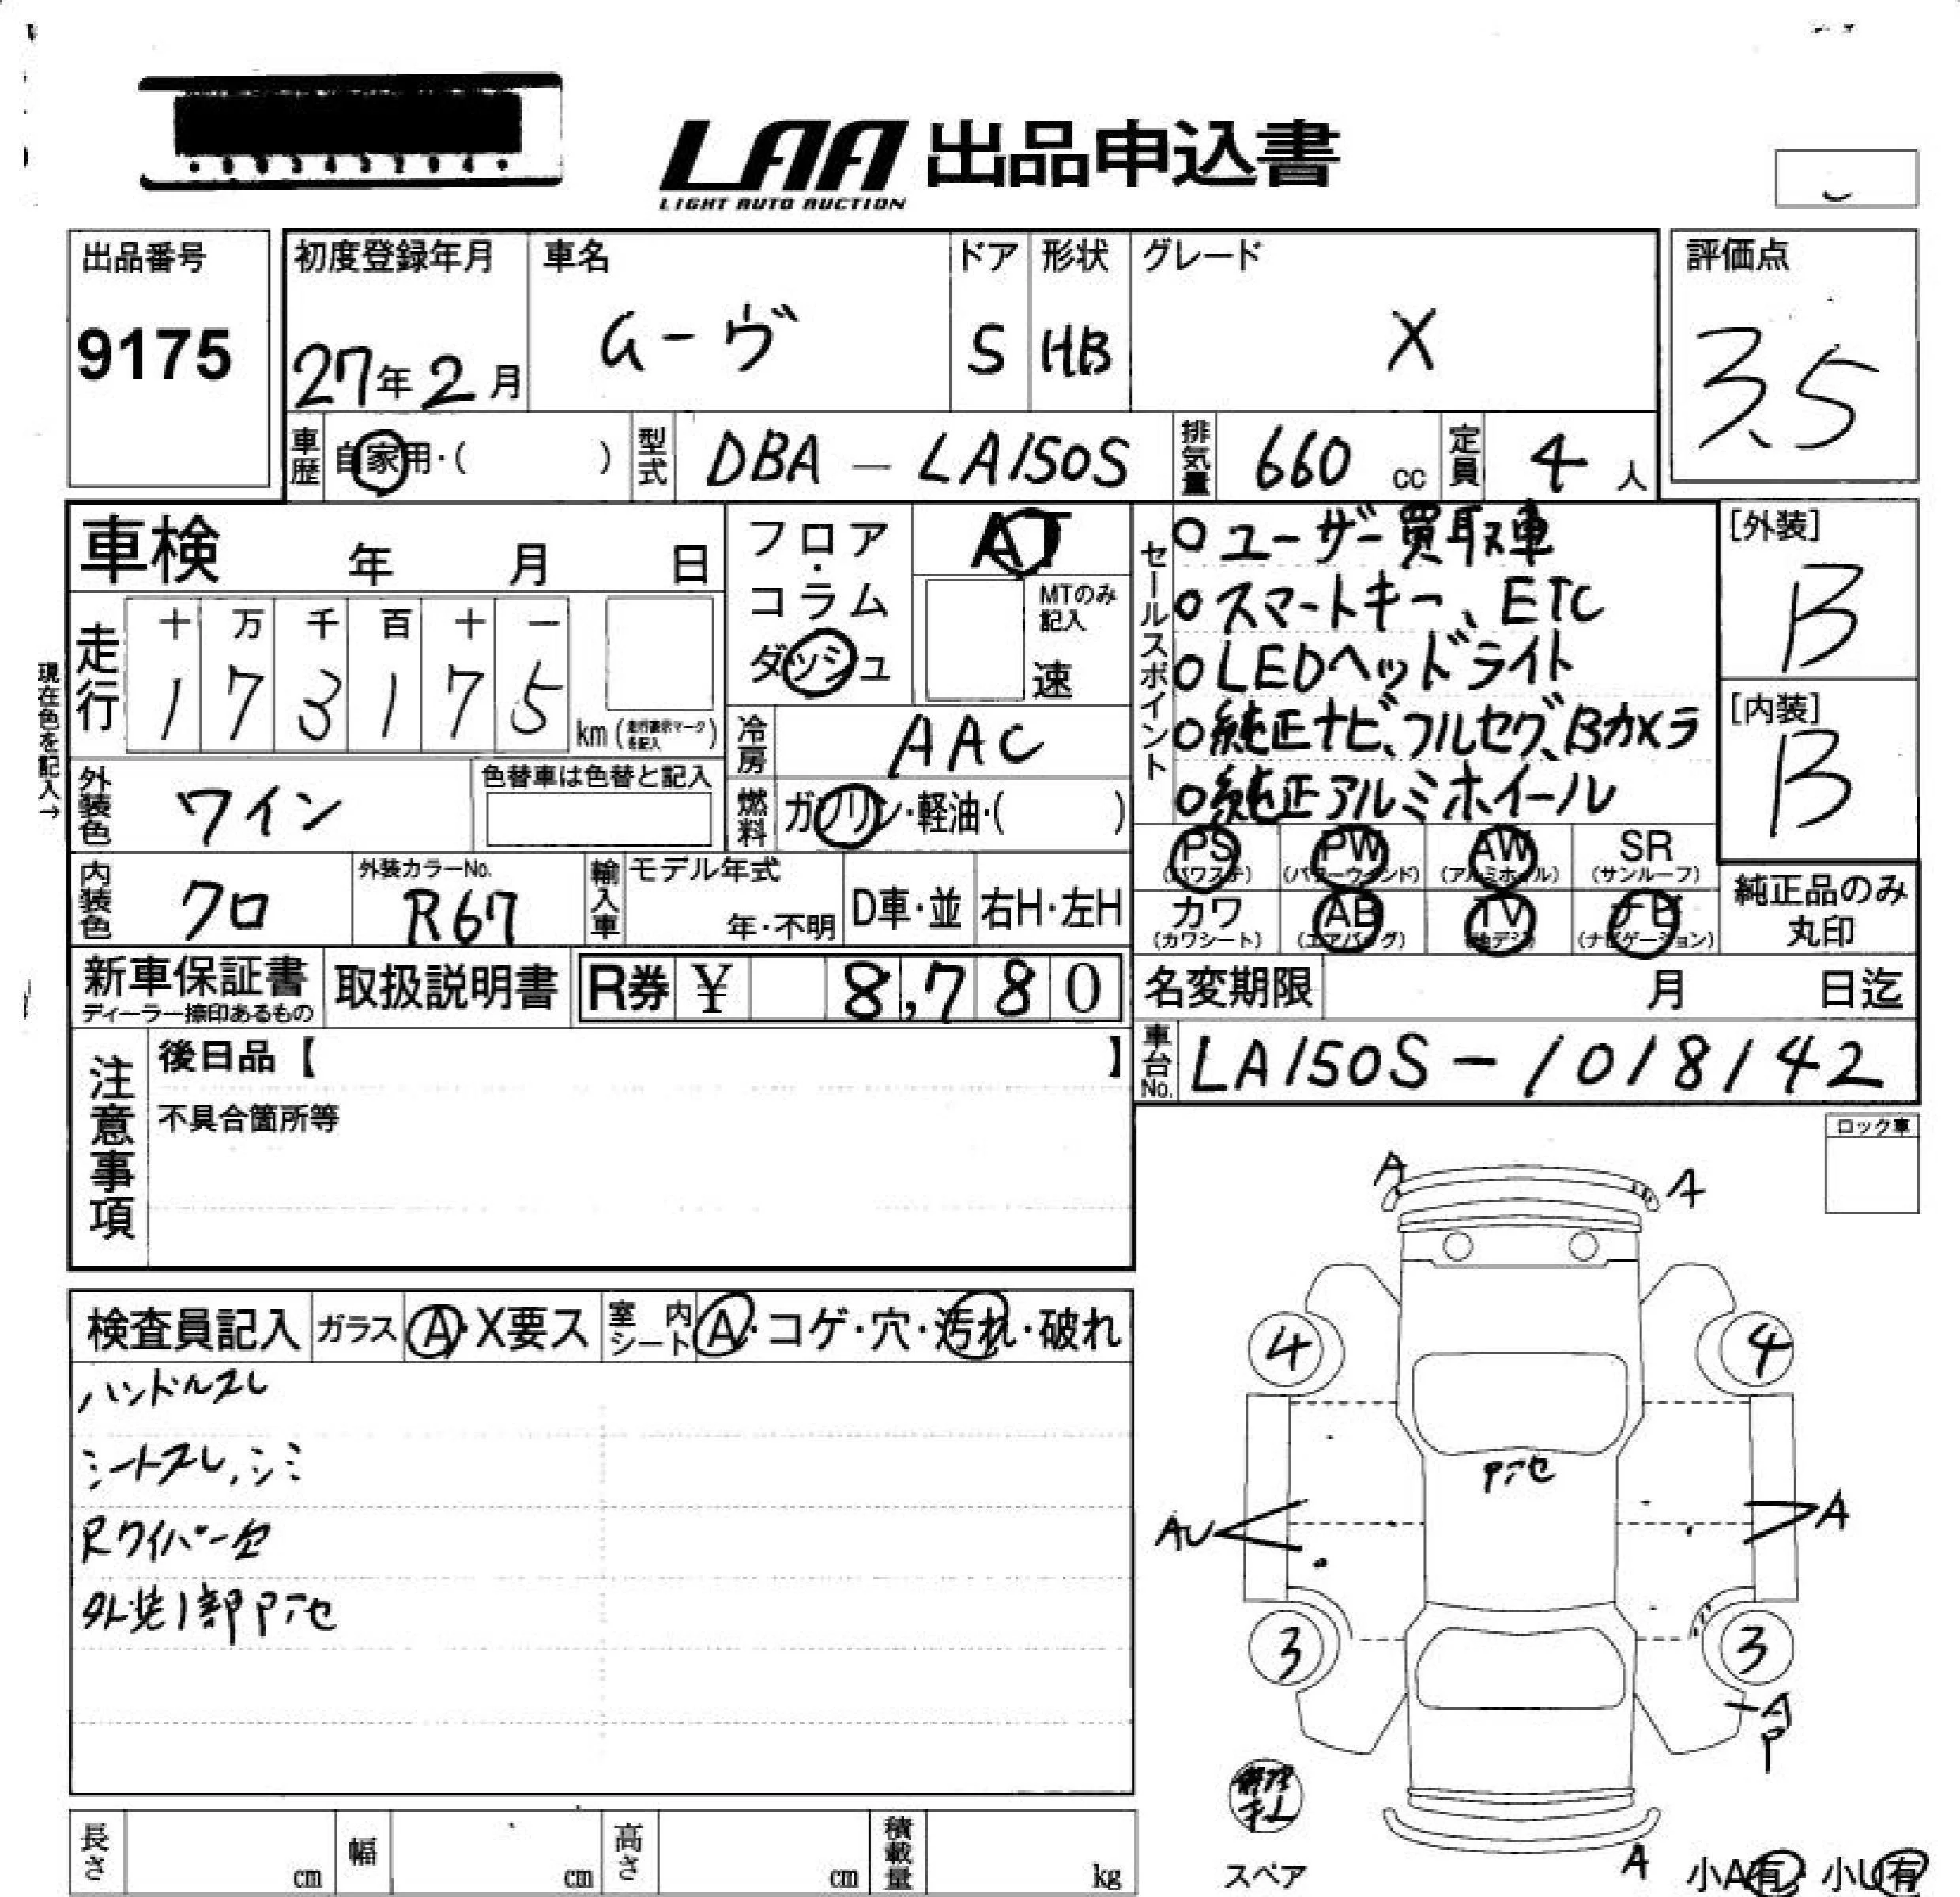 LAA 出品申込書
LIGHT AUTO AUCTION
出品番号 9175
初度登録年月 27年2月
車名 ムーヴ
ドア 5
形状 HB
グレード X
評価点 3.5
車歴 自家用・( )
型式 DBA - LA150S
排気量 660 cc
定員 4 人
車検 年 月 日
フロア・コラム ダッシュ
AT
MTのみ記入 速
セールスポイント
○ユーザー買取車
○スマートキー、ETC
○LEDヘッドライト
○純正ナビ、フルセグ、Bカメラ
○純正アルミホイール
[外装] B
[内装] B
現在色を記入→
走行 十 万 千 百 十 一
1 7 3 1 7 5 km (走行表示マークを記入)
冷房 AAC
外装色 ワイン
色替車は色替と記入
燃料 ガソリン・軽油・( )
内装色 クロ
外装カラーNo. R67
輸入車 モデル年式 年・不明 D車・並 右H・左H
PS (パワステ) PW (パワーウインド) AW (アルミホイル) SR (サンルーフ)
カワ (カワシート) AB (エアバッグ) TV (地デジ) ナビ (ナビゲーション)
純正品のみ丸印
新車保証書 ディーラー捺印あるもの
取扱説明書
R券 ¥ 8,780
名変期限 月 日迄
車台No. LA150S-1018142
注意事項
後日品【 】
不具合箇所等
ロック車
検査員記入 ガラス A・X要ス 室内シート A・コゲ・穴・汚れ・破れ
ハンドルスレ
シートスレ、シミ
Rワイパー欠
外装1部Pアセ
A A
4 4
Pアセ
AU A
3 3
A
P
修理
キット
スペア
A
小A有 小U有
長さ cm 幅 cm 高さ cm 積載量 kg